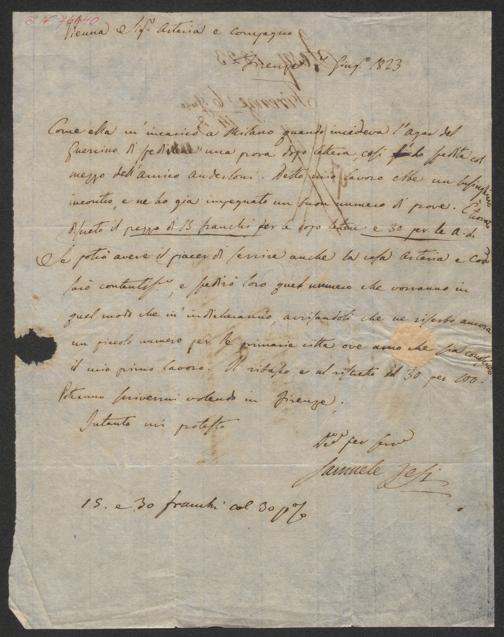 Vienna Sig.i Artaria e Compagno
Firenze Giug.o 1823
Come ella m'incaricò a Milano quando incideva l'Agar del
Guercino di spedirle una prova dopo lettera, così spedita col
mezzo dell'amico Anderloni. Detto mio lavoro ebbe un
incontro, e ne ho già impegnato un buon numero di prove. È fissato
il prezzo di 15 franchi per le dopo lettere, e 30 per le a. l.
Se potrò avere il piacer di servire anche la casa Artaria e Co
sarò contentiss.o, e spedirò loro quel numero che vorranno in
quel modo che m'indicheranno, avvisandoli che ne riserbo ancora
un piccolo numero per le primarie città ove amo che sia
il mio primo lavoro. Il ribasso e al 30 per 100.
Potranno scrivermi volendo in Firenze.
Intanto mi protesto
Samuele Jesi
15. e 30 franchi col 30 p%